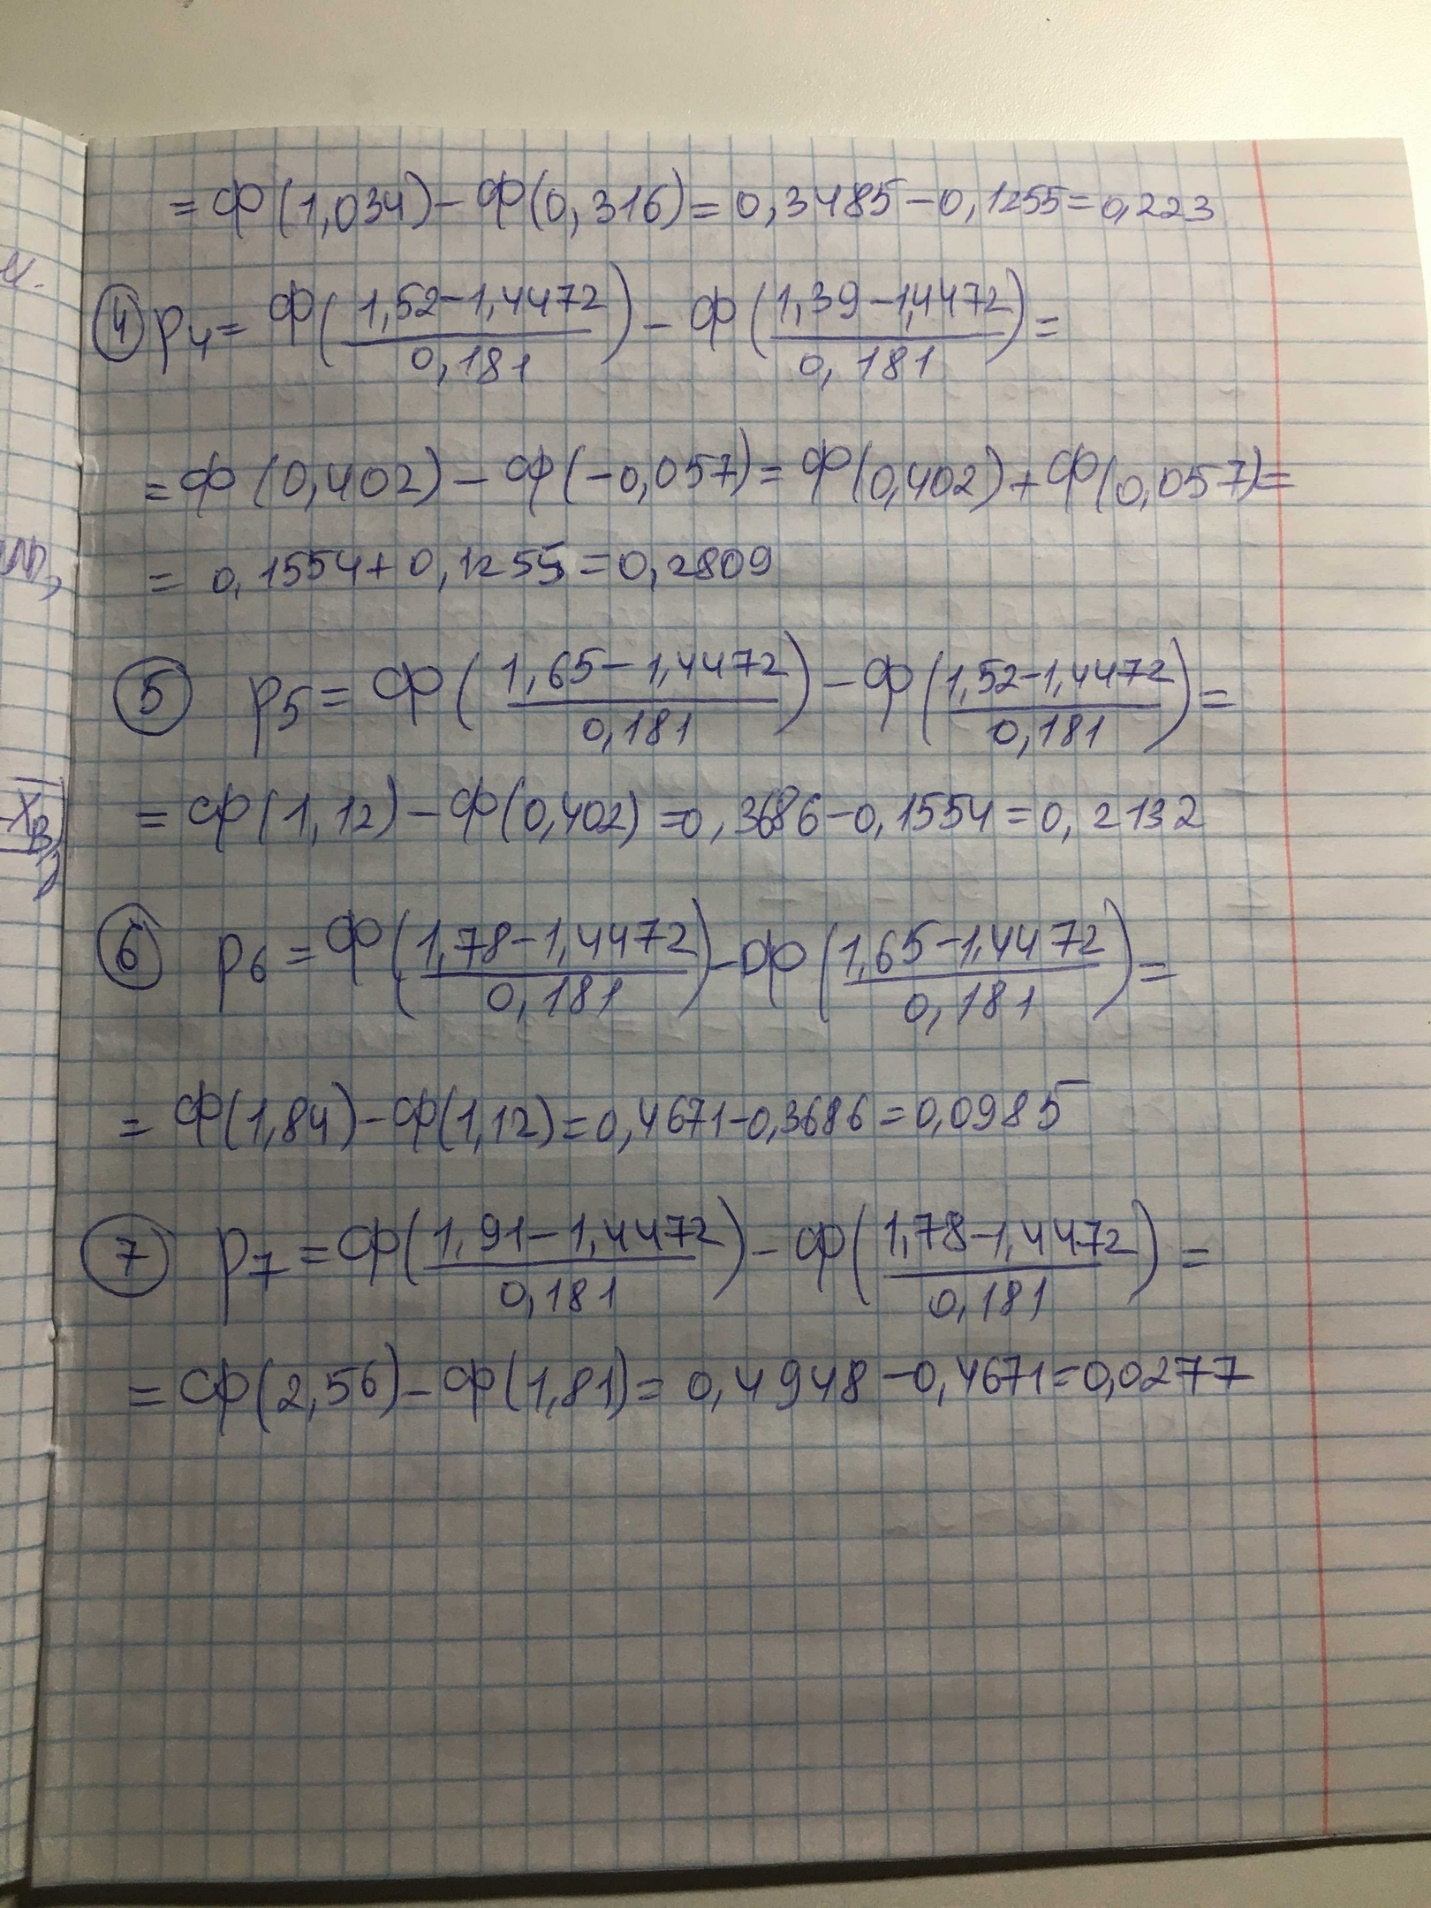 = Ф(1,034) - Ф(0,316) = 0,3485 - 0,1255 = 0,223
④ p₄ = Ф((1,52-1,4472)/0,181) - Ф((1,39-1,4472)/0,181) =
= Ф(0,402) - Ф(-0,057) = Ф(0,402) + Ф(0,057) =
= 0,1554 + 0,1255 = 0,2809
⑤ p₅ = Ф((1,65-1,4472)/0,181) - Ф((1,52-1,4472)/0,181) =
= Ф(1,12) - Ф(0,402) = 0,3686 - 0,1554 = 0,2132
⑥ p₆ = Ф((1,78-1,4472)/0,181) - Ф((1,65-1,4472)/0,181) =
= Ф(1,84) - Ф(1,12) = 0,4671 - 0,3686 = 0,0985
⑦ p₇ = Ф((1,91-1,4472)/0,181) - Ф((1,78-1,4472)/0,181) =
= Ф(2,56) - Ф(1,81) = 0,4948 - 0,4671 = 0,0277